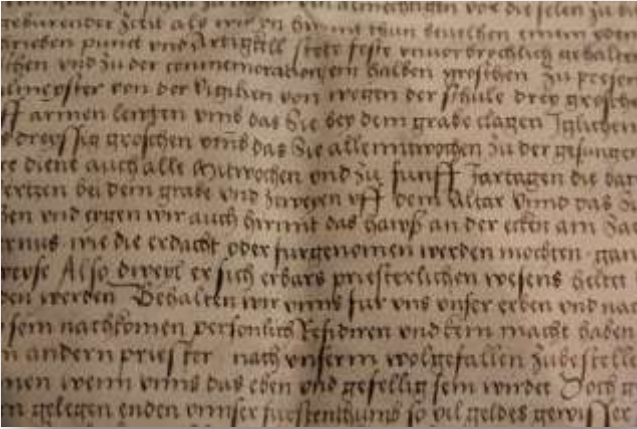 almechtigen vor die selen zu
geburender Zceit als wir yn hirmit thun bevelhen einem
punct vnd Artigkell stete feste vnuorbrochlich gehalten
vnd zu der commemoration ein halben groschen zu presen
von der vigilien von wegen der schule drey grosche
armen lewten vmb das Sie bey dem grabe clagen Iglichem
dreyssig groschen vmb das Sie alle mitwochen zu der gesungen
diene auch alle Mitwochen vnd zu funff Jartagen die
bei dem grabe vnd zcweyen vff dem Altar vnnd das
vnd eygen wir auch hirmit das hawß an der eckot am
wie die erdacht oder furgenomen werden mochten
Also dweyl er sich erbars priesterlichen wesens heltet
werden Behalten wir vnns fur vns vnser erben vnd
sein nachkomen personlich Residiren vnd kein macht haben
andern priester nach vnserm wolgefallen zubestelle
wenn vnns das eben vnd gefellig sein wirdet Doch
gelegen enden vnnser furstenthumb so vil geldes gewisser